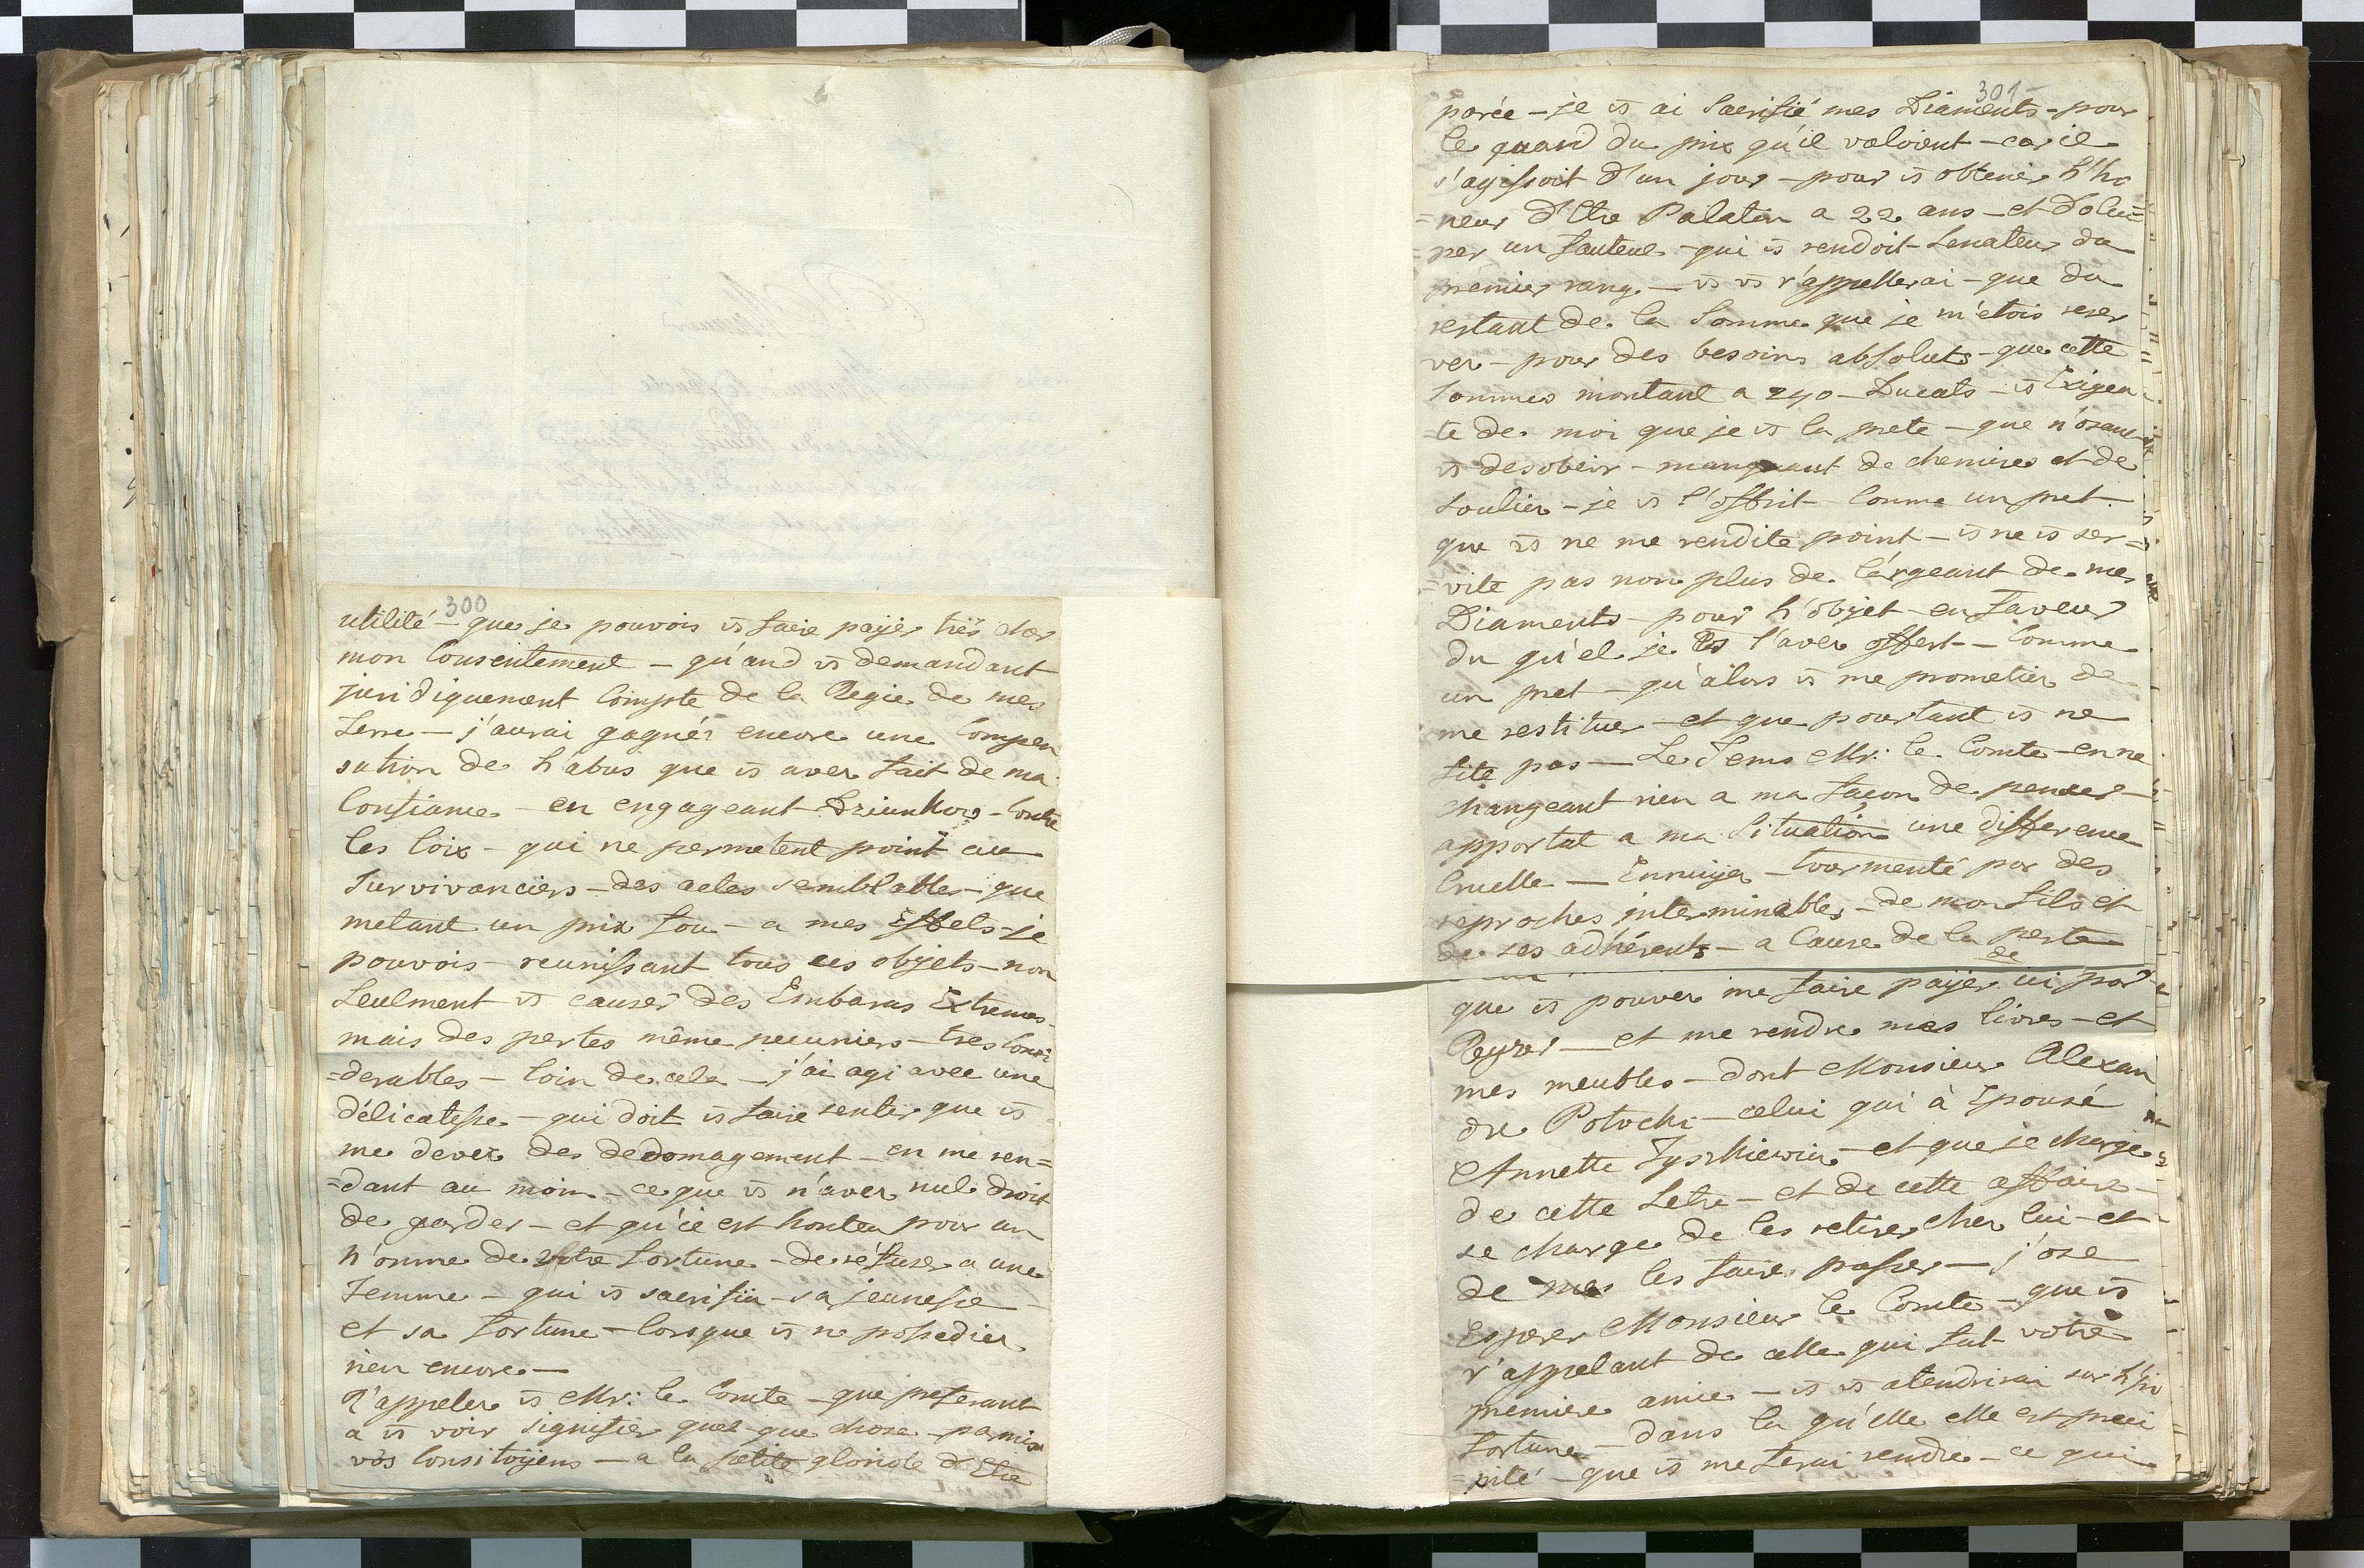 300
utilité – que je pouvois vs faire payér très cher
mon Consentement – qu'and vs demandant
juridiquement Compte de la Regie de mes
terre – j'aurai gagnér encore une Compen
sation de h'abus que vs aver fait de ma
Confiance – en engageant – Contre
les loix – qui ne permetent point aux
Survivanciers – des actes semblables – que
metant un prix fou – a mes Effets – je
pouvois – reunissant tous ces objets – non
Seulment vs causer des Embaras Extremes
mais des pertes même pecuniers – tres Consi
=derables – loin de cela – j'ai agi avec une
délicatesse – qui doit vs faire sentir que vs
me devez des dedomagement – en me ren=
=dant au moin – ce que vs n'aver nul droit
de garder – et qu'ie est honteu pour un
h'omme de votre fortune – de refuser a une
Femme – qui vs sacrifia – sa jeunesse –
et sa fortune – lorsque vs ne possedier
rien encore –
R'appeler vs Mr: le Comte – que preferant
a vs voir signifier quel que chose – parmis
vos Consitoyens – a la petite gloriole d'Etre
301
parée – je vs ai Sacrifié mes Diaments – pour
le quard du prix qu'il valoient – car il
s'agissoit d'un jour – pour vs obtenir h'ho
=neur d'Etre Palatin a 22 ans – et d'olcu=
=per un fauteul – qui vs rendoit Senateur du
premier rang – vs vs r'appellerai – que du
restant de la Somme que je m'etois reser
ver – pour des besoins absoluts – que cette
Sommes montant a 240 – Ducats – vs Exigea
=te de moi que je vs la prete – que n'osant
vs desobeir – manquant de chemises et de
Soulier – je vs l'offrit Comme un pret
que vs ne me rendite point – vs ne vs ser=
=vite pas non plus de l'argeant de mes
Diaments – pour h'objet en faveur
du qu'el je vs l'aver offert – Comme
un pret – qu'alors vs me prometier de
me restituer – et que pourtant vs ne
fite pas – Le Tems Mr: le Comte – en ne
changeant rien a ma façon de penser –
apportat a ma Situation une difference
Cruelle – Ennuyer – tourmenté par des
reproches interminables – de mon fils et
de ses adhérents – a Cause de la perte
de
que vs pouver me faire payer ici par
Reyzer – et me rendre mes livres – et
mes meubles – dont Monsieur Alexan
dre Potocki – celui qui à Epousé
Annette Tyszkiewicz – et que je charge
de cette Letre – et de cette affaire –
se charge de les retirer cher lui – et
de me les faire passer – j'ose
Esperer Monsieur le Comte – que vs
r'appelant de celle qui fut votre
premiere amie – vs vs atendrirai sur h'in
fortune – dans la qu'elle elle est preci
=pité – que vs me ferai rendre – ce qui